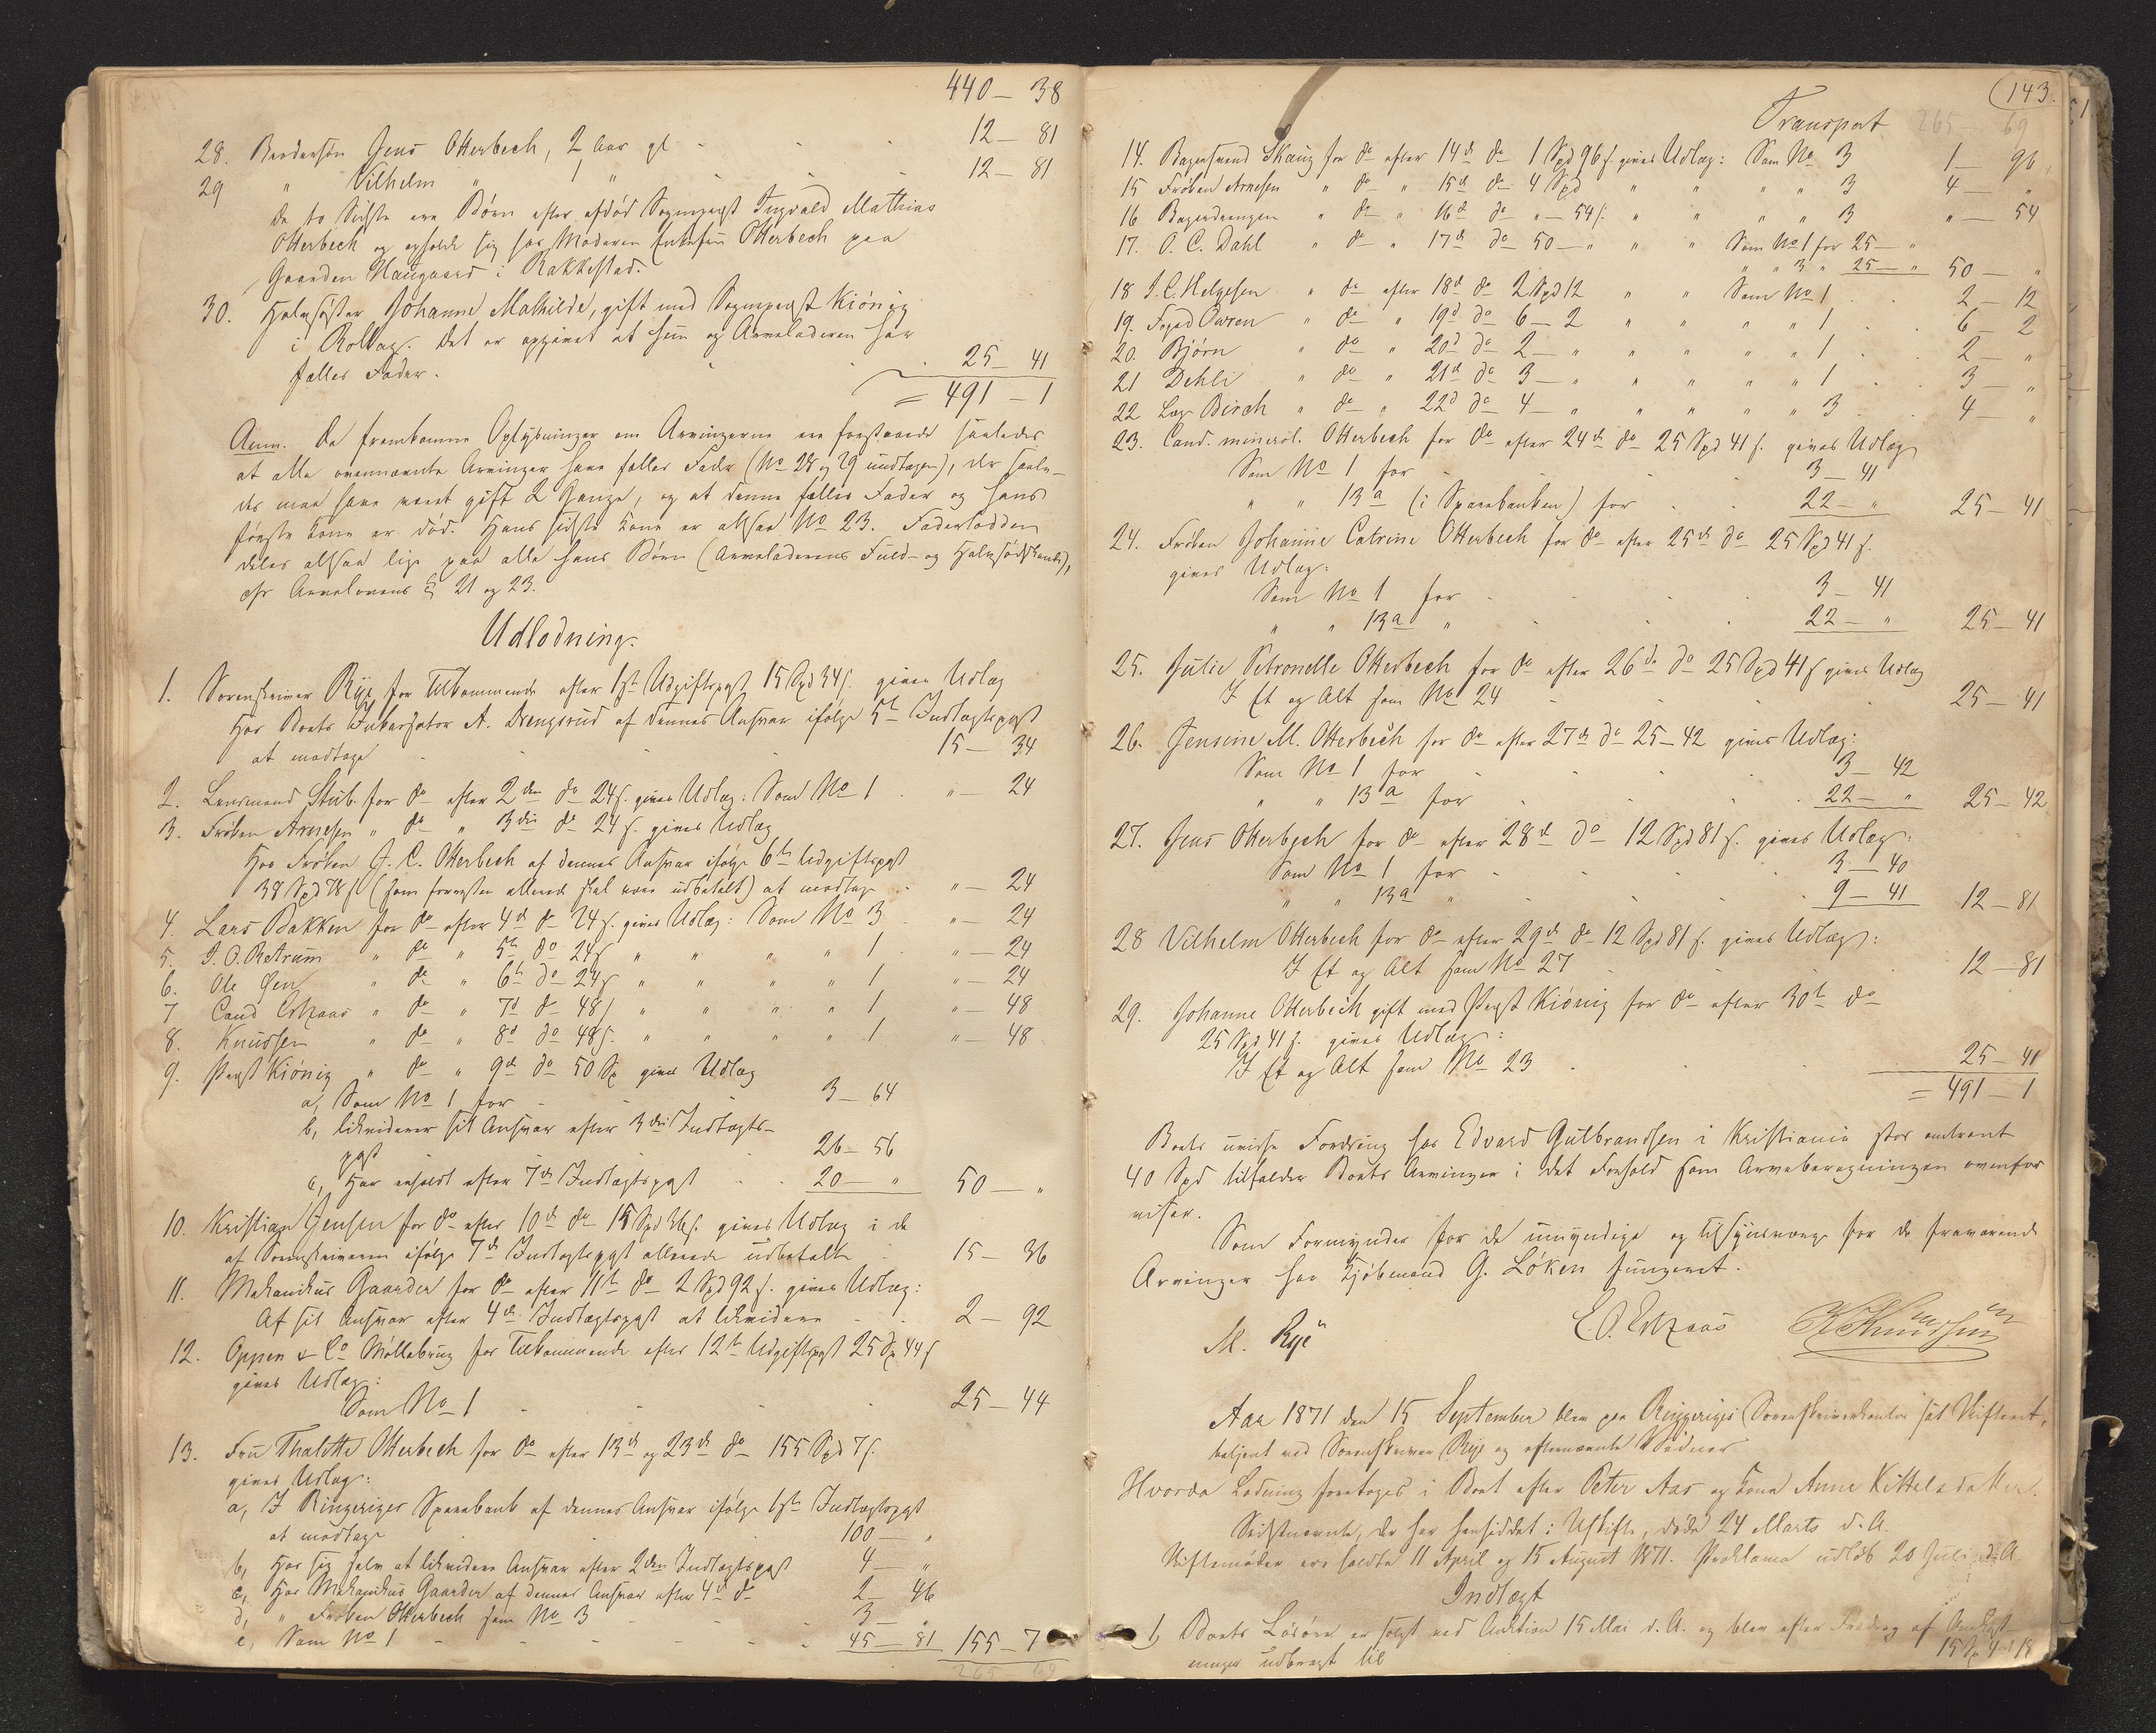 440 — 38
28. Brodersøn Jens Otterbech, 2 Aar gl. 12 — 81
29 " Vilhelm " 1 " 12 — 81
de to Sidste ere Børn efter afdød Sogneprest Ingvald Mathias
Otterbech og opholde sig hos Moderen Enkefru Otterbech paa
Gaarden Haugaard i Rakkestad.
30. Halvsøster Johanne Mathilde, gift med Sogneprest Kiönig
i Rollag. Det er opgivet at hun og Arveladeren har
fælles Fader. 25 — 41
= 491 — 1
Anm. De fremkomne Oplysninger om Arvingerne ere forstaaede saaledes
at alle ovennævnte Arvinger have fælles Fader (No 28 og 29 undtagen), der saale-
des maa have været gift 2 Gange, og at denne fælles Fader og hans
første Kone er død. Hans sidste Kone er altsaa No 23. Faderlodden
deles altsaa lige paa alle hans Børn (Arveladerens Fuld- og Halvsødskende),
cfr Arvelovens § 21 og 23.
Udlodning.
1. Sorenskriver Rye for Tilkommende efter 1ste Udgiftspost 15 Spd 34 s. gives Udlæg
Hos Boets Inkassator A. Drengsrud af dennes Ansvar ifølge 5te Indtægtspost
at modtage 15 — 34
2. Lensmand Stub for do efter 2den do 24 s. gives Udlæg: Som No 1 " — 24
3. Frøken Arnesen " do " 3die do 24 s. gives Udlæg
Hos Frøken J. C. Otterbech af dennes Ansvar ifølge 6te Udgiftspost
38 Spd 78 s (som forresten allerede skal være udbetalt) at modtage " — 24
4. Lars Bakken for do efter 4de do 24 s. gives Udlæg: Som No 3 " — 24
5. J. O. Retrum " do " 5te do 24 s " " " " 1 " — 24
6. Ole Gen " do " 6te do 24 s " " " " 1 " — 24
7 Cand Eskaas " do " 7d do 48 s " " " " 1 " — 48
8. Knudsen " do " 8d do 48 s. " " " " 1 " — 48
9. Prest Kiönig " do " 9de do 50 Sp gives Udlæg
a, Som No 1 for 3 — 64
b, likviderer sit Ansvar efter 3die Indtægts-
post 26 — 56
c, Har erholdt efter 7de Indtægtspost 20 — " 50 — "
10. Kristian Jensen for do efter 10de do 15 Spd 36 s. gives Udlæg i de
af Sorenskriveren ifølge 7de Indtægtspost allerede udbetalte 15 — 36
11. Mekanikus Gaarder for do efter 11te do 2 Spd 92 s. gives Udlæg:
Af sit Ansvar efter 4de Indtægtspost at likvidere 2 — 92
12. Oppen & Co Møllebrug for Tilkommende efter 12te Udgiftspost 25 Sp. 44 s
gives Udlæg:
Som No 1 25 — 44
13. Fru Thalette Otterbech for do efter 13de og 23de do 155 Spd 7 s.
gives Udlæg:
a, I Ringeriges Sparebank af dennes Ansvar ifølge 1ste Indtægtspost
at modtage 100 — "
b, Hos sig selv at likvidere Ansvar efter 2den Indtægtspost 4 — "
c, Hos Mekanikus Gaarder af dennes Ansvar efter 4de do 2 — 46
d, " Frøken Otterbech som No 3 3 — "
e, Som No 1 45 — 81 155 — 7
265 — 69
143.
Transport 265 — 69
14. Bagersvend Skaug for do efter 14de do 1 Spd 96 s. gives Udlæg: Som No 3 1 — 96
15 Frøken Arnesen " do " 15de do 4 Spd " " " " 3 4 — "
16 Bagerdrengen " do " 16de do " — 54 s. " " " " 3 " — 54
17. O. C. Dahl " do " 17de do 50 — " " " Som No 1 for 25 — "
" " 3 " 25 — " 50 — "
18 J. C. Helgesen " do efter 18de do 2 Spd 12 " " Som No 1 2 — 12
19. Foged Owren " do " 19d do 6 — 2 " " " " 1 6 — 2
20. Bjørn " do " 20d do 2 — " " " " " 1 2 — "
21 Dehli " do " 21de do 3 — " " " " " 1 3 — "
22 Læge Birch " do " 22d do 4 — " " " " " 3 4 — "
23. Cand. mineral. Otterbech for do efter 24de do 25 Spd 41 s. gives Udlæg
Som No 1 for 3 — 41
" " 13a (i Sparebanken) for 22 — " 25 — 41
24. Frøken Johanne Catrine Otterbech for do efter 25de do 25 Spd 41 s.
gives Udlæg:
Som No 1 for 3 — 41
" " 13a " 22 — " 25 — 41
25. Julie Petronelle Otterbech for do efter 26de do 25 Spd 41 s gives Udlæg
I Et og Alt som No 24 25 — 41
26. Jensine M. Otterbech for do efter 27de do 25 — 42 gives Udlæg:
Som No 1 for 3 — 42
" " 13a for 22 — " 25 — 42
27. Jens Otterbech for do efter 28de do 12 Spd 81 s. gives Udlæg:
Som No 1 for 3 — 40
" " 13a " 9 — 41 12 — 81
28 Vilhelm Otterbech for do efter 29de do 12 Spd 81 s. gives Udlæg:
I Et og Alt som No 27 12 — 81
29. Johanne Otterbech gift med Prest Kiönig for do efter 30te do
25 Spd 41 s. gives Udlæg:
I Et og Alt som No 23 25 — 41
= 491 — 1
Boets uvisse Fordring hos Edvard Gulbrandsen i Kristiania stor omtrent
40 Spd tilfalder Boets Arvinger i det Forhold som Arveberegningen ovenfor
viser.
Som Formynder for de umyndige og tilsynsværge for de fraværende
Arvinger har Kjøbmand G. Løken fungeret.
M. Rye E. O. Eskaas K Knudssen
Aar 1871 den 15 September blev paa Ringeriges Sorenskriverkontor sat Skifteret,
betjent ved Sorenskriver Rye og efternævnte Vidner
Hvorda Lodning foretoges i Boet efter Peter Aas og Kone Anne Kittelsdatter.
Sidstnævnte, der har hensiddet i Uskifte, døde 24 Marts d. A.
Skiftemøder ere holdte 11 April og 15 August 1871. Proklama udløb 20 Juli d. A.
Indtægt
1, Boets Løsøre er solgt ved Auktion 15 Mai d. A. og blev efter Fradrag af
udbragt til 15 Sp 4 18